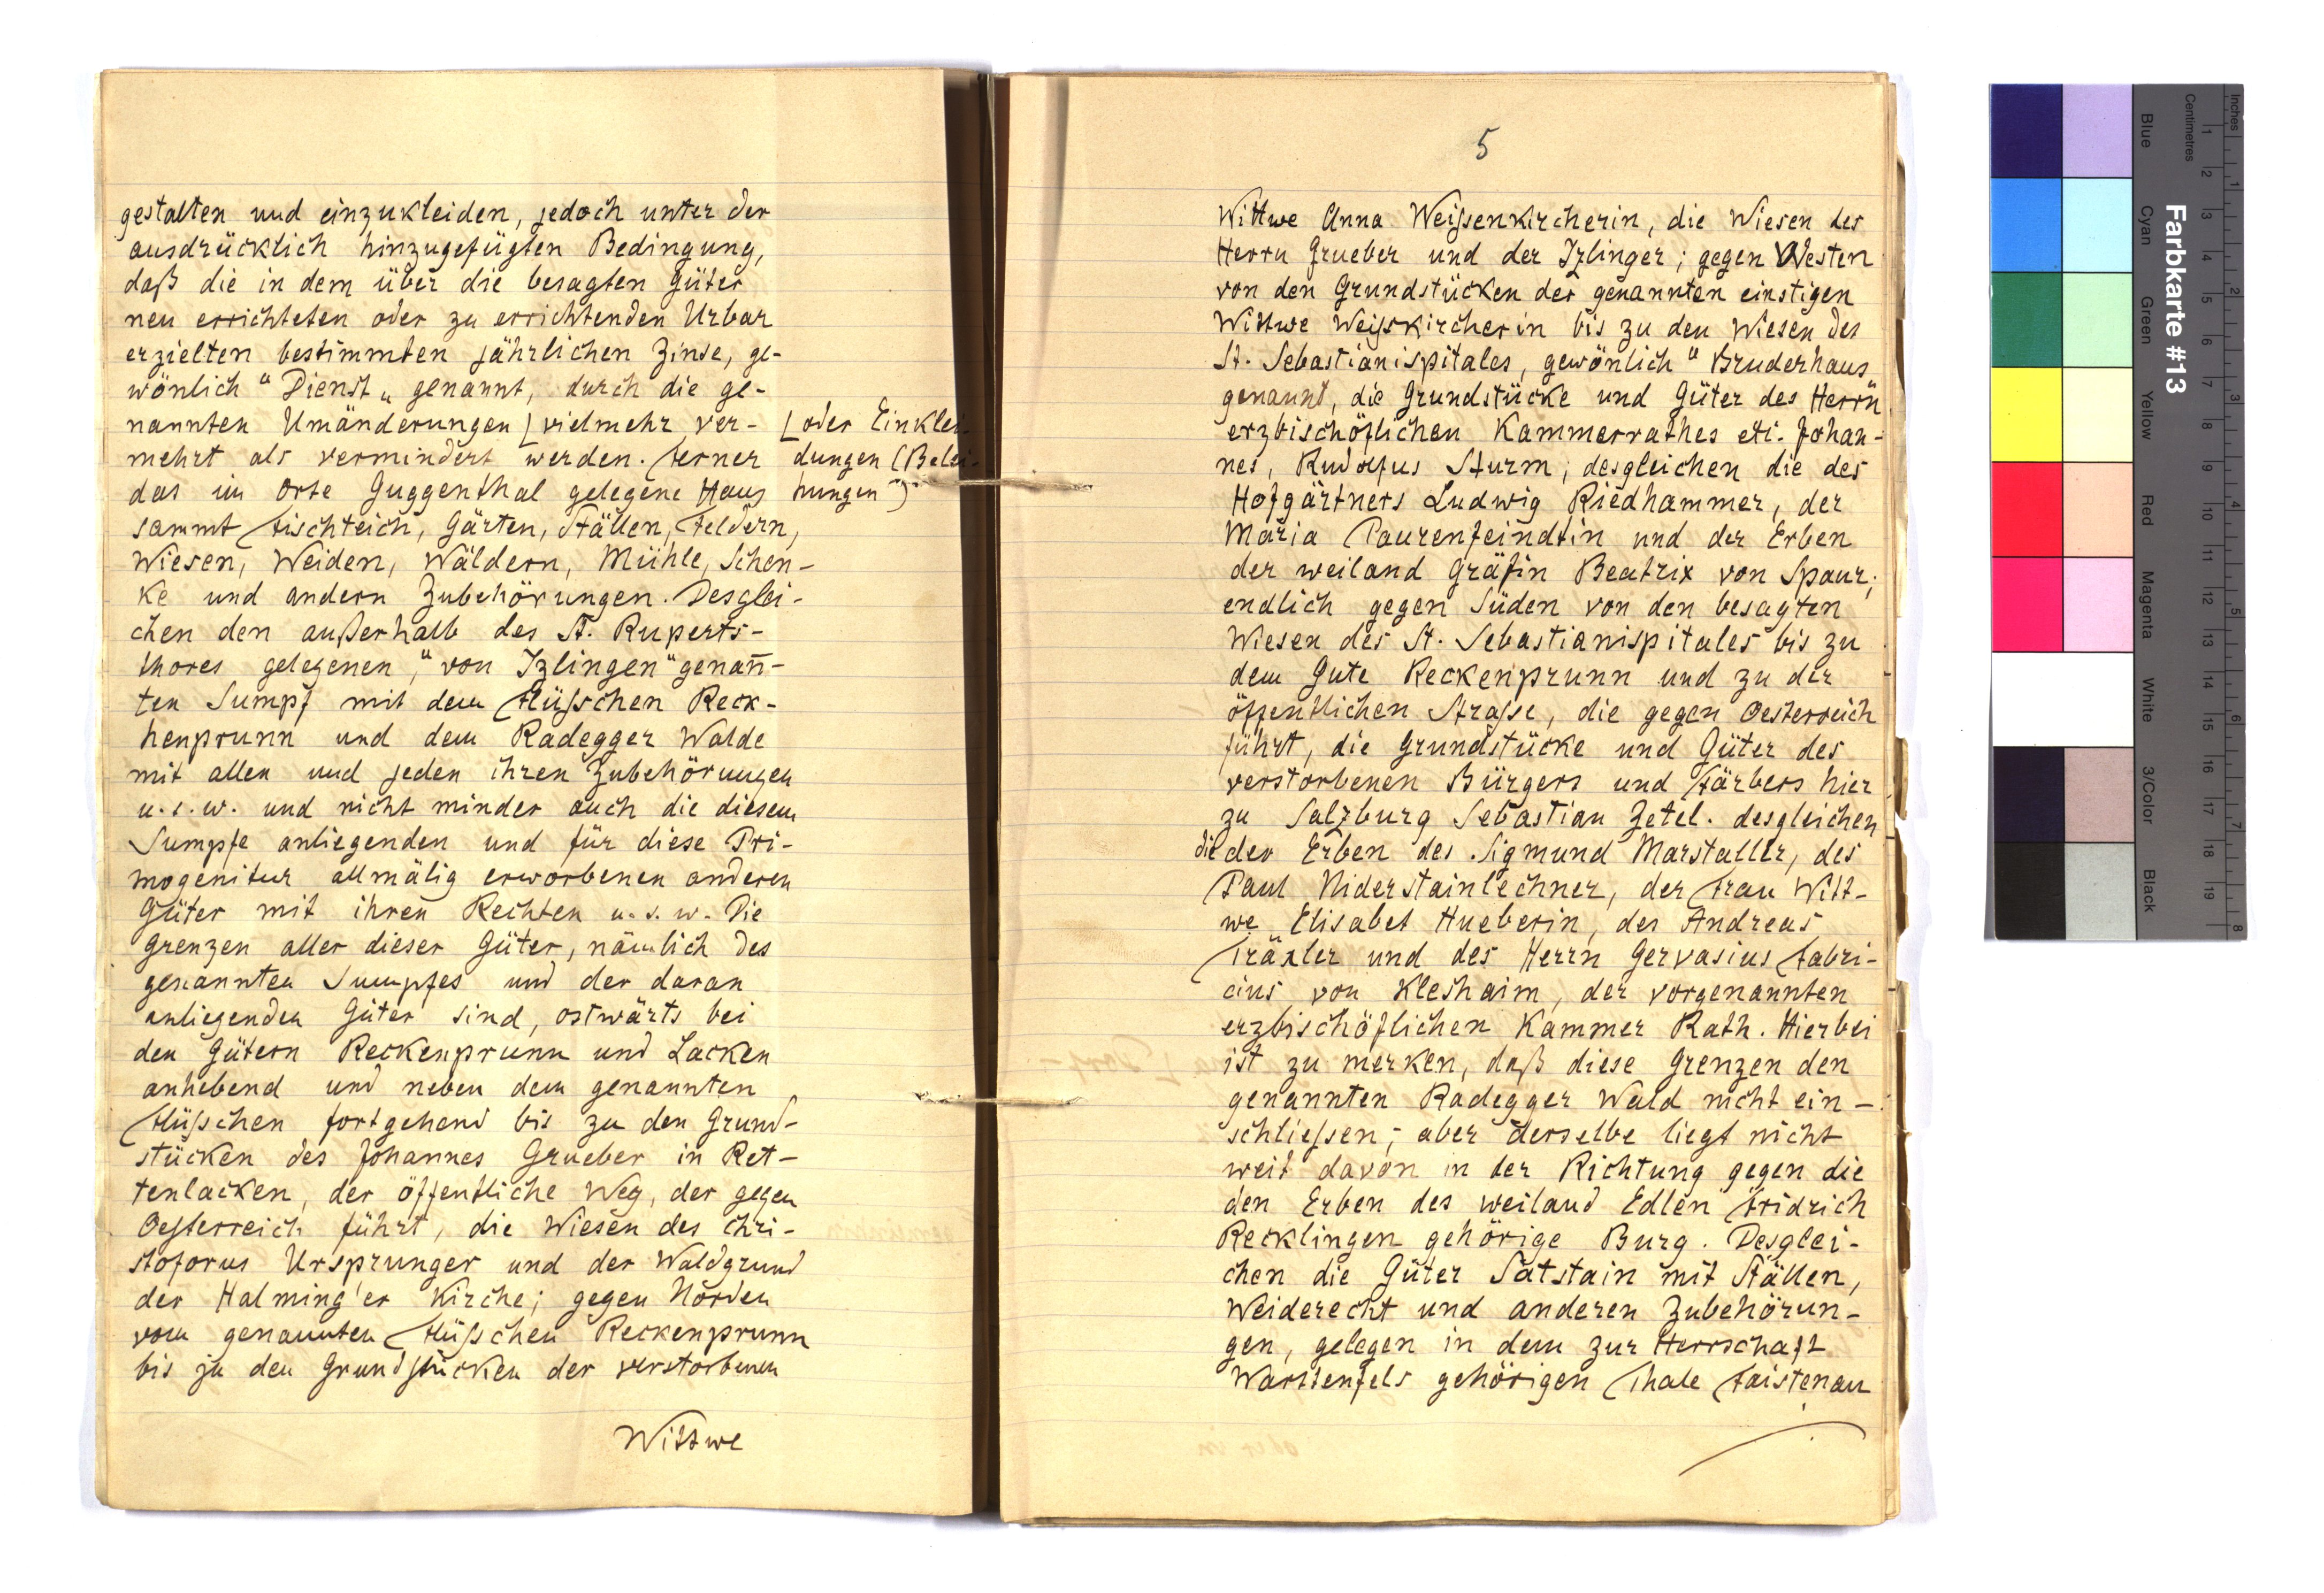 gestalten und einzukleiden, jedoch unter der
ausdrücklich hinzugefügten Bedingung,
daß die in dem über die besagten Güter
neu errichteten oder zu errichtenden Urbar
erzielten bestimmten jährlichen Zinse, ge-
wönlich "Dienst„ genannt, durch die ge-
nannten Umänderungen ⌊ vielmehr ver-
mehrt als vermindert werden. Ferner
das im Orte Guggenthal gelegene Haus
sammt Fischteich, Gärten, Ställen, Feldern,
Wiesen, Weiden, Wäldern, Mühle, Schen-
ke und andern Zubehörungen. Desglei-
chen den außerhalb des St. Ruperts-
thores gelegenen, "von Izlingen" genan̄-
ten Sumpf mit dem Flüßchen Reck-
henprunn und dem Radegger Walde
mit allen und jeden ihren Zubehörungen
u. s. w. und nicht minder auch die diesem
Sumpfe anliegenden und für diese Pri-
mogenitur allmälig erworbenen anderen
Güter mit ihren Rechten u. s. w. Die
Grenzen aller dieser Güter, nämlich des
genannten Sumpfes und der daran
anliegenden Güter sind, ostwärts bei
den Gütern Reckenprunn und Lacken
anhebend und neben dem genannten
Flüßchen fortgehend bis zu den Grund-
stücken des Johannes Grueber in Ret-
tenlacken, der öffentliche Weg, der gegen
Oesterreich führt, die Wiesen des Chri-
stoforus Ursprunger und der Waldgrund
der Halming'er Kirche; gegen Norden
vom genannten Flüßchen Reckenprunn
bis zu den Grundstücken der verstorbenen
Wittwe
⌊ oder Einklei-
dungen (Belei-
hungen")
5
Wittwe Anna Weißenkircherin, die Wiesen des
Herrn Grueber und der Izlinger; gegen Westen
von den Grundstücken der genannten einstigen
Wittwe Weißkircherin bis zu den Wiesen des
St. Sebastianispitales, gewönlich "Bruderhaus
genannt, die Grundstücke und Güter des Herrn
erzbischöflichen Kammerrathes etc. Johan-
nes, Rudolfus Sturm; desgleichen die des
Hofgärtners Ludwig Riedhammer, der
Maria Paurenfeindtin und der Erben
der weiland Gräfin Beatrix von Spaur;
endlich gegen Süden von den besagten
Wiesen des St. Sebastianispitales bis zu
dem Gute Reckenprunn und zu der
öffentlichen Straße, die gegen Oesterreich
führt, die Grundstücke und Güter des
verstorbenen Bürgers und Färbers hier
zu Salzburg Sebastian Zetel. desgleichen
die der Erben des Sigmund Marstaller, des
Paul Niderstainlechner, der Frau Witt-
we Elisabet Hueberin, des Andreas
Träxler und des Herrn Gervasius Fabri-
cius von Klesheim, der vorgenannten
erzbischöflichen Kammer Rath. Hierbei
ist zu merken, daß diese Grenzen den
genannten Radegger Wald nicht ein-
schließen; aber derselbe liegt nicht
weit davon in der Richtung gegen die
den Erben des weiland Edlen Fridrich
Recklingen gehörige Burg. Desglei-
chen die Güter Satstain mit Ställen,
Weiderecht und anderen Zubehörun-
gen, gelegen in dem zur Herrschaft
Wartenfels gehörigen Thale Faistenau
Farbkarte #13
Inches
Centimetres
Blue
Cyan
Green
Yellow
Red
Magenta
White
3/Color
Black